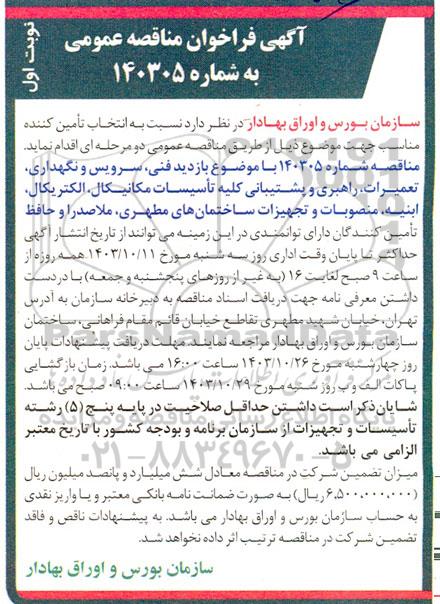 نوبت اول
آگهی فراخوان مناقصه عمومی
به شماره ۱۴۰۳۰۵
سازمان بورس و اوراق بهادار در نظر دارد نسبت به انتخاب تأمین کننده
مناسب جهت موضوع ذیل از طریق مناقصه عمومی دو مرحله ای اقدام نماید.
مناقصه شماره ۱۴۰۳۰۵ با موضوع بازدید فنی، سرویس و نگهداری،
تعمیرات، راهبری و پشتیبانی کلیه تأسیسات مکانیکال، الکتریکال،
ابنیه، منصوبات و تجهیزات ساختمان‌های مطهری، ملاصدرا و حافظ
تأمین کنندگان دارای توانمندی در این زمینه می توانند از تاریخ انتشار آگهی
حداکثر تا پایان وقت اداری روز سه شنبه مورخ ۱۴۰۳/۱۰/۱۱ همه روزه از
ساعت ۹ صبح لغایت ۱۶ (به غیر از روزهای پنجشنبه و جمعه) با در دست
داشتن معرفی نامه جهت دریافت اسناد مناقصه به دبیرخانه سازمان به آدرس
تهران، خیابان شهید مطهری تقاطع خیابان قائم مقام فراهانی، ساختمان
سازمان بورس و اوراق بهادار مراجعه نمایند. مهلت دریافت پیشنهادات پایان
روز چهارشنبه مورخ ۱۴۰۳/۱۰/۲۶ ساعت ۱۶:۰۰ می باشد. زمان بازگشایی
پاکات الف و ب روز شنبه مورخ ۱۴۰۳/۱۰/۲۹ ساعت ۰۹:۰۰ صبح می باشد.
شایان ذکر است داشتن حداقل صلاحیت در پایه پنج (۵) رشته
تأسیسات و تجهیزات از سازمان برنامه و بودجه کشور با تاریخ معتبر
الزامی می باشد.
میزان تضمین شرکت در مناقصه معادل شش میلیارد و پانصد میلیون ریال
(۶,۵۰۰,۰۰۰,۰۰۰ ریال) به صورت ضمانت نامه بانکی معتبر و یا واریز نقدی
به حساب سازمان بورس و اوراق بهادار می باشد. به پیشنهادات ناقص و فاقد
تضمین شرکت در مناقصه ترتیب اثر داده نخواهد شد.
سازمان بورس و اوراق بهادار
۰۲۱-۸۸۳۴۹۶۷۰-۵